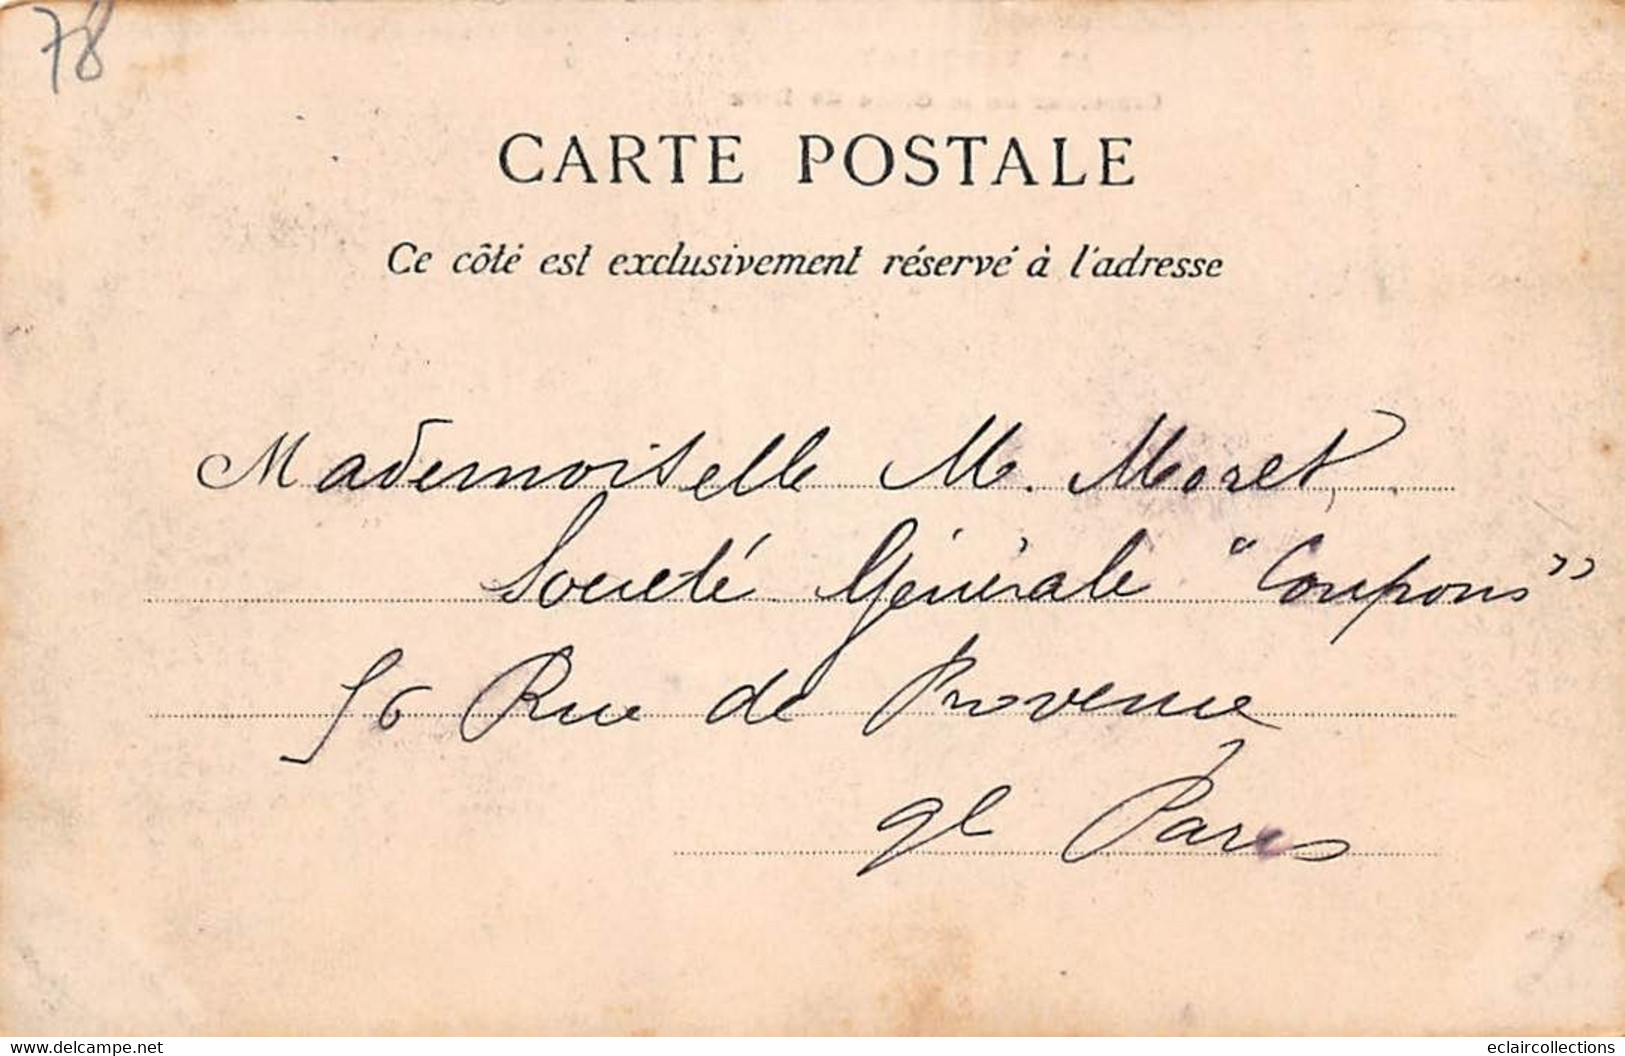 78
CARTE POSTALE
Ce côté est exclusivement réservé à l'adresse
Mademoiselle M. Moret,
Société Générale "Coupons"
56 Rue de Provence
Paris
www.delcampe.net
eclaircollections